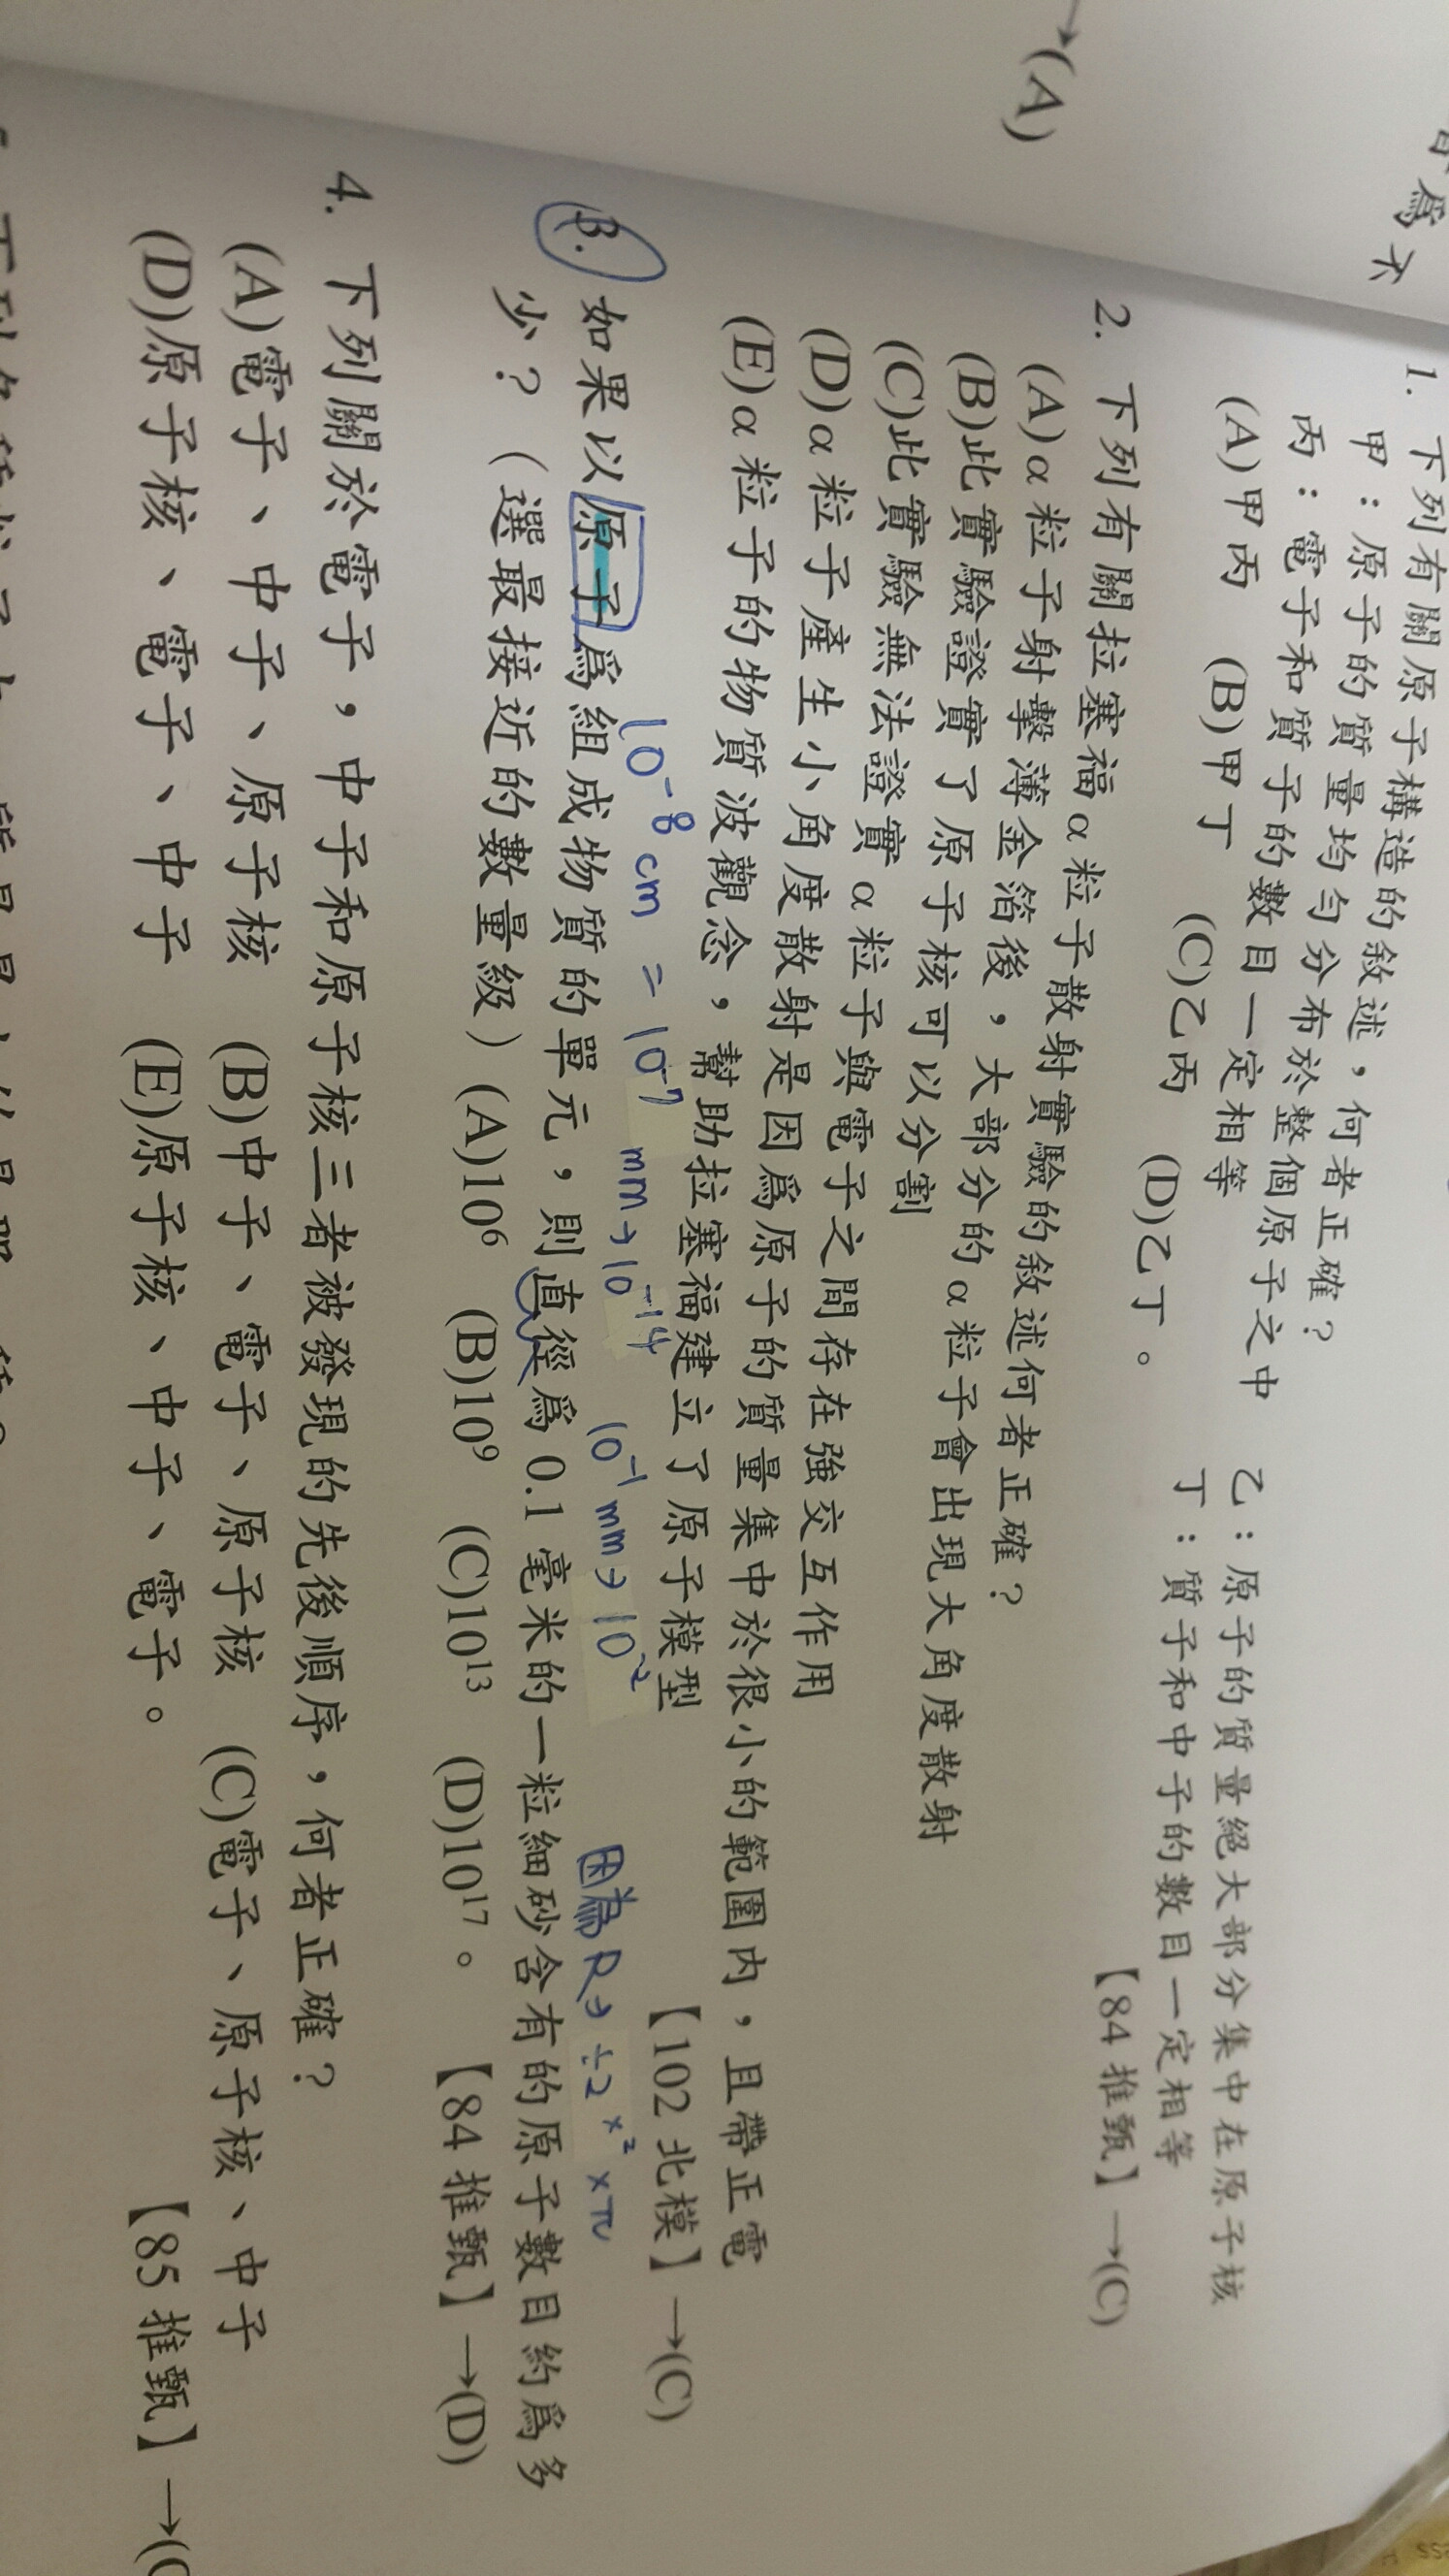 →(A)
1. 下列有關原子構造的敘述，何者正確？
甲：原子的質量均勻分布於整個原子之中
乙：原子的質量絕大部分集中在原子核
丙：電子和質子的數目一定相等
丁：質子和中子的數目一定相等
(A)甲丙 (B)甲丁 (C)乙丙 (D)乙丁。
【84 推甄】→(C)
2. 下列有關拉塞福α粒子散射實驗的敘述何者正確？
(A)α粒子射擊薄金箔後，大部分的α粒子會出現大角度散射
(B)此實驗證實了原子核可以分割
(C)此實驗無法證實α粒子與電子之間存在強交互作用
(D)α粒子產生小角度散射是因爲原子的質量集中於很小的範圍內，且帶正電
(E)α粒子的物質波觀念，幫助拉塞福建立了原子模型
【102 北模】→(C)
10⁻⁸ cm = 10⁻⁷ mm→10⁻¹⁴ 10⁻¹ mm→10⁻² 因為R→÷2 ×² ×π
3. 如果以原子爲組成物質的單元，則直徑爲 0.1 毫米的一粒細砂含有的原子數目約爲多
少？（選最接近的數量級）(A)10⁶ (B)10⁹ (C)10¹³ (D)10¹⁷。 【84 推甄】→(D)
4. 下列關於電子，中子和原子核三者被發現的先後順序，何者正確？
(A)電子、中子、原子核 (B)中子、電子、原子核 (C)電子、原子核、中子
(D)原子核、電子、中子 (E)原子核、中子、電子。
【85 推甄】→(C